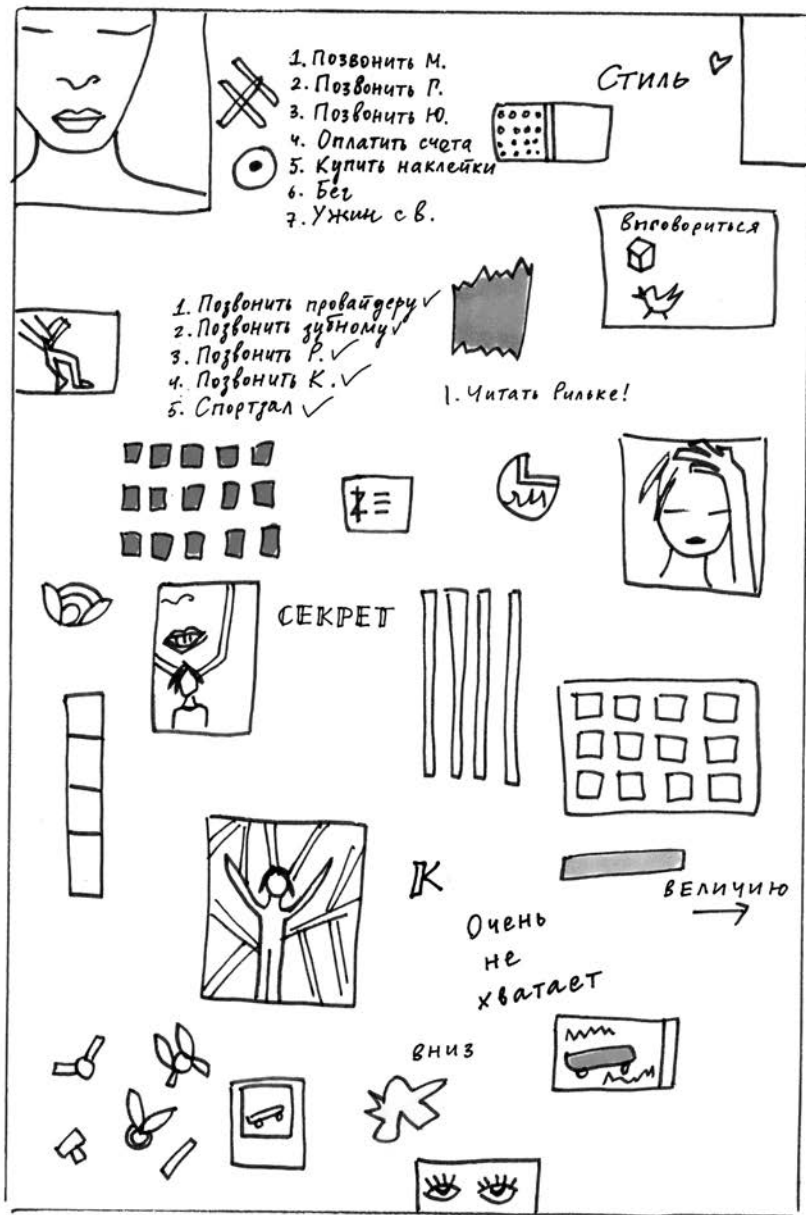 1. Позвонить М.
2. Позвонить Г.
3. Позвонить Ю.
4. Оплатить счета
5. Купить наклейки
6. Бег
7. Ужин с В.
Стиль
Выговориться
1. Позвонить провайдеру ✓
2. Позвонить зубному ✓
3. Позвонить Р. ✓
4. Позвонить К. ✓
5. Спортзал ✓
1. Читать Рильке!
СЕКРЕТ
К
ВЕЛИЧИЮ
Очень
не
хватает
вниз